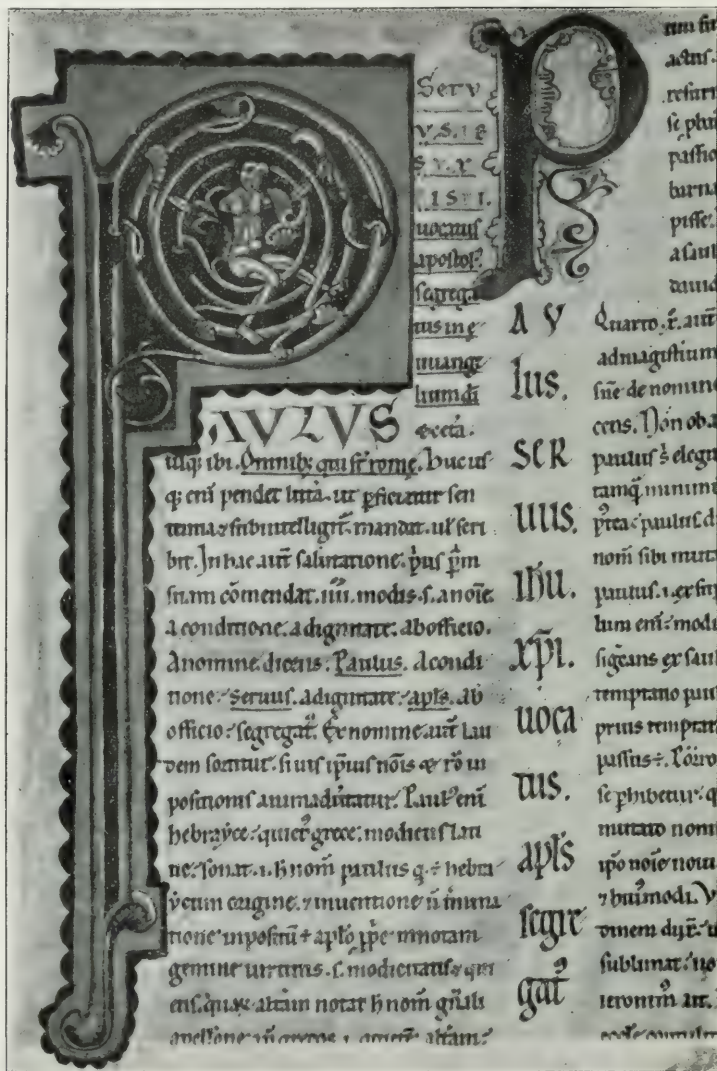 P
Serv
V.S.IE
S.V.X
.ISTI.
uocatus
apostol'
segrega
tus in e
uuange
lium dī
AVLVS & ceta.
usq; ibi. Omnibꝫ qui st̄ rome. Hucus
q; eni pendet litt̄a. ut ꝑficiatur sen
bit. In hac aut̄ salutatione. pͥus pͥm
suam cōmendat. iiii. modis. s. a noīe.
a conditione. a dignitate. ab officio.
A nomine dicens. Paulus. A condi
tione. seruus. a dignitate. apl̄s. ab
officio. segregat'. Ex nomine aut̄ lau
dem sortitur. si uis ip̄ius nōis & rō in
positionis animaduertatur. Paul' enī
hebrayce. quiet' grece. modicus lati
ne sonat. .i. h nom̄ paulus q. ÷ hebra
ycum origine. & inuentione
tione inpositū ÷ apl̄o ꝓpe innotam
gemine uirtutis. s. modicitatis & qui
etis. altam notat h nom̄
P
A V
lus.
SER
UUS.
IH̄U.
XP̄I.
UOCA
TUS.
APL̄S
SEGRE
GAT'
tim sit
actus.
resurr
se plur
passio
barna
pisse.
a saul
dauid
Quarto. r̄. aut̄
ad magistium
sīue de nomine
cens. Non ob a
paulus s; elegit
tamq̄ minim
pͥtea paulus d
nom̄ sibi muta
paulus. .i. ex
lum eni modi
sig̅cans ex saul
temptatio
prius temptat
passus ÷. Porro
se ꝓhibetur. q
mutato nomi
ip̄o noīe noui
& huiusmodi. V
dinem
sublimat. uo
ieronim̄ ait.